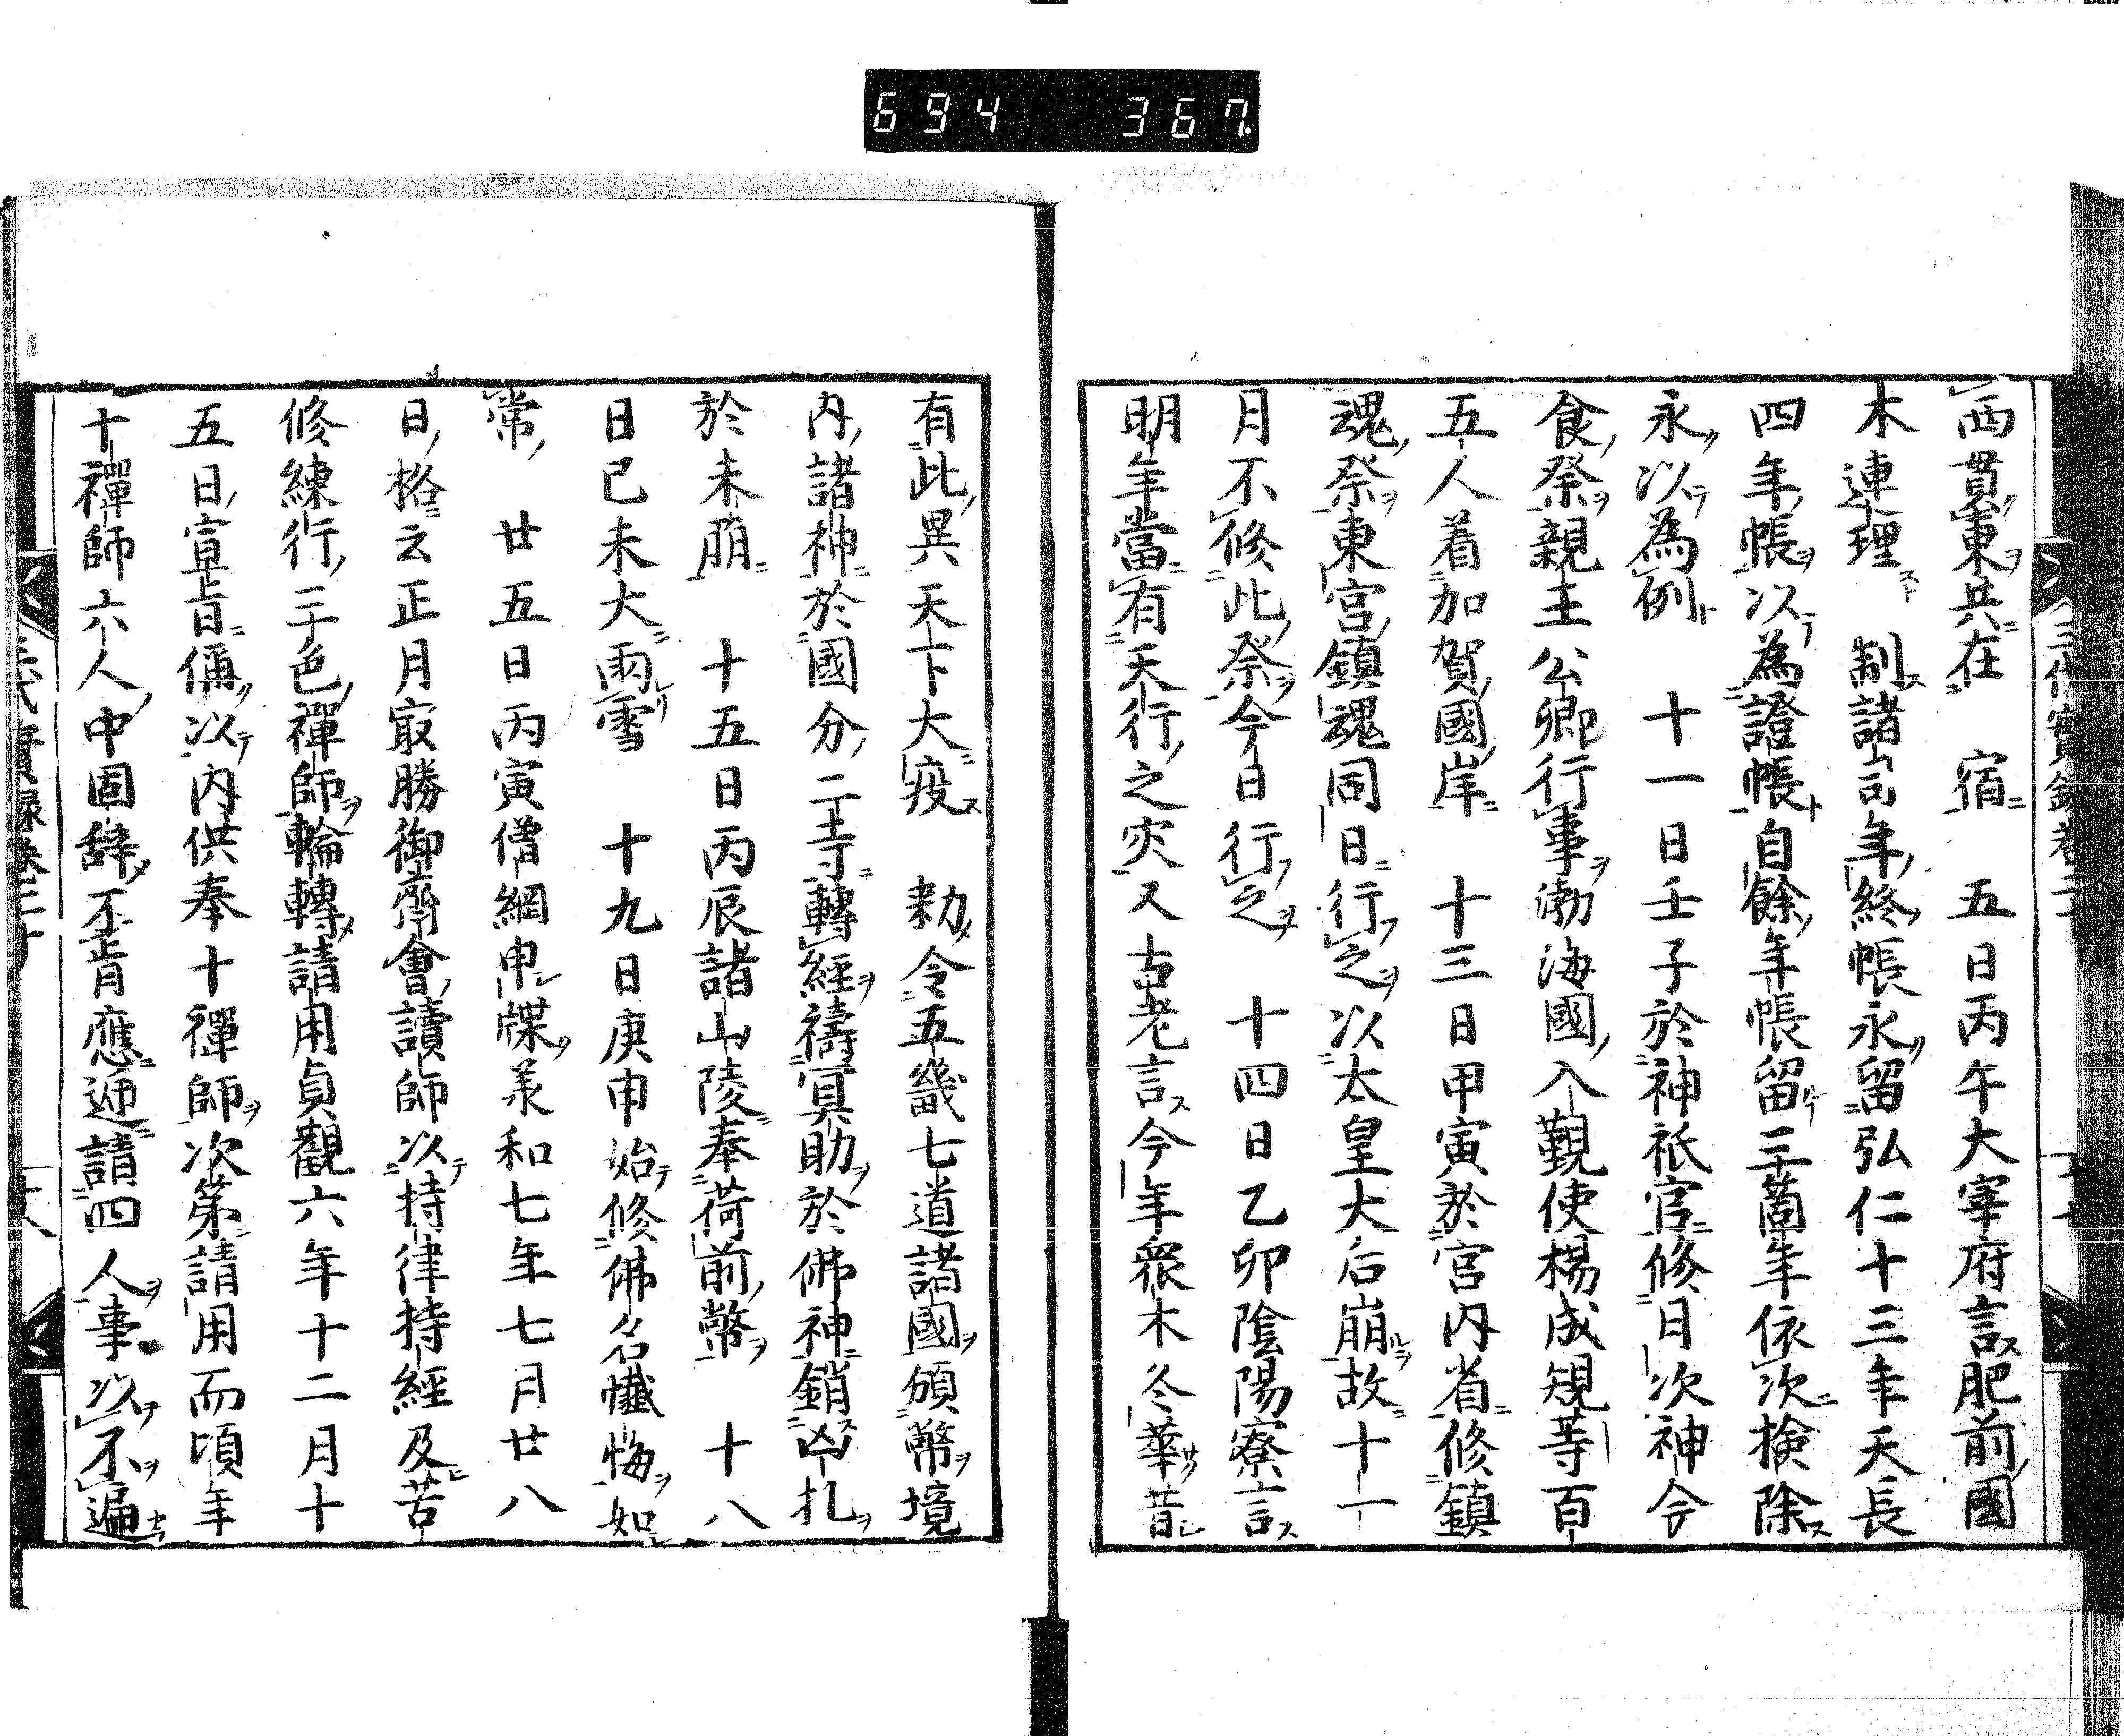 694 367
西貫東兵在 宿 五日丙午大宰府言肥前國
木連理 制諸司年終帳永留弘仁十三年天長
四年帳以為證帳自餘年帳留三箇年依次檢除
永以為例 十一日壬子於神祇官修日次神今
食祭親王公卿行事渤海國入覲使楊成規等百
五人着加賀國岸 十三日甲寅於宮内省修鎮
魂祭東宮鎮魂同日行之以太皇大后崩故十一
月不修此祭今日行之 十四日乙卯陰陽寮言
明年當有天行之灾又古老言今年衆木冬華昔
有此異天下大疫 勑令五畿七道諸國頒幣境
内諸神於國分二寺轉經禱冥助於佛神銷凶札
於未萠 十五日丙辰諸山陵奉荷前幣 十八
日己未大雨雪 十九日庚申始修佛名懺悔如
常 廿五日丙寅僧綱申牒羕和七年七月廿八
日格云正月㝡勝御齋會讀師以持律持經及苦
修練行三色禪師輪轉請用貞觀六年十二月十
五日宣旨偁以内供奉十禪師次第請用而頃年
十禪師六人中固辞不肯應逓請四人事以不遍
三代實録卷二十
十八